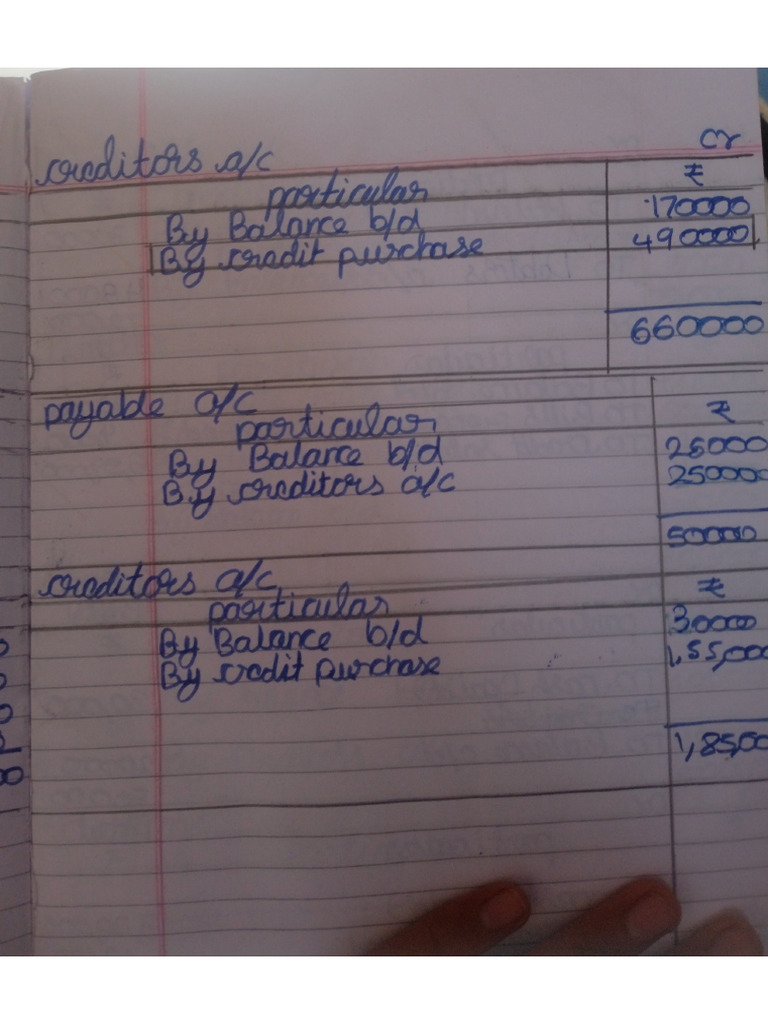 cr
creditors a/c
particular ₹
By Balance b/d 170000
By credit purchase 490000
660000
payable a/c
particular ₹
By Balance b/d 25000
By creditors a/c 250000
50000
creditors a/c
particular ₹
By Balance b/d 30000
By credit purchase 1,55,000
1,85,00